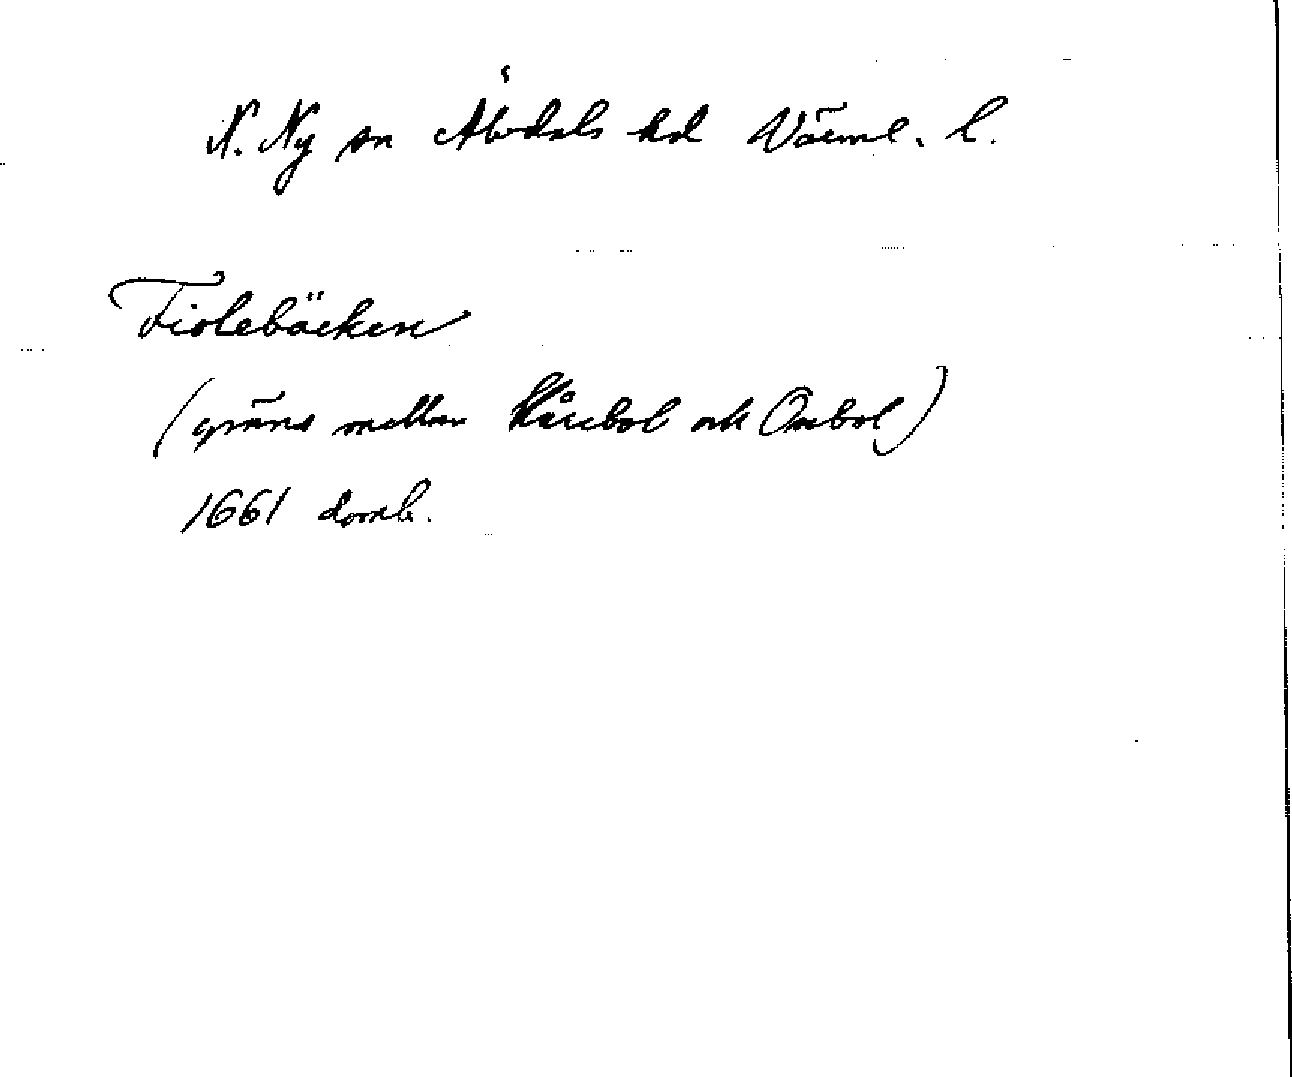 N. Ny sn Älvdals hd Värml. l.
Tiolebäcken
(gräns mellan Kårebol och Onbol)
1661 domb.